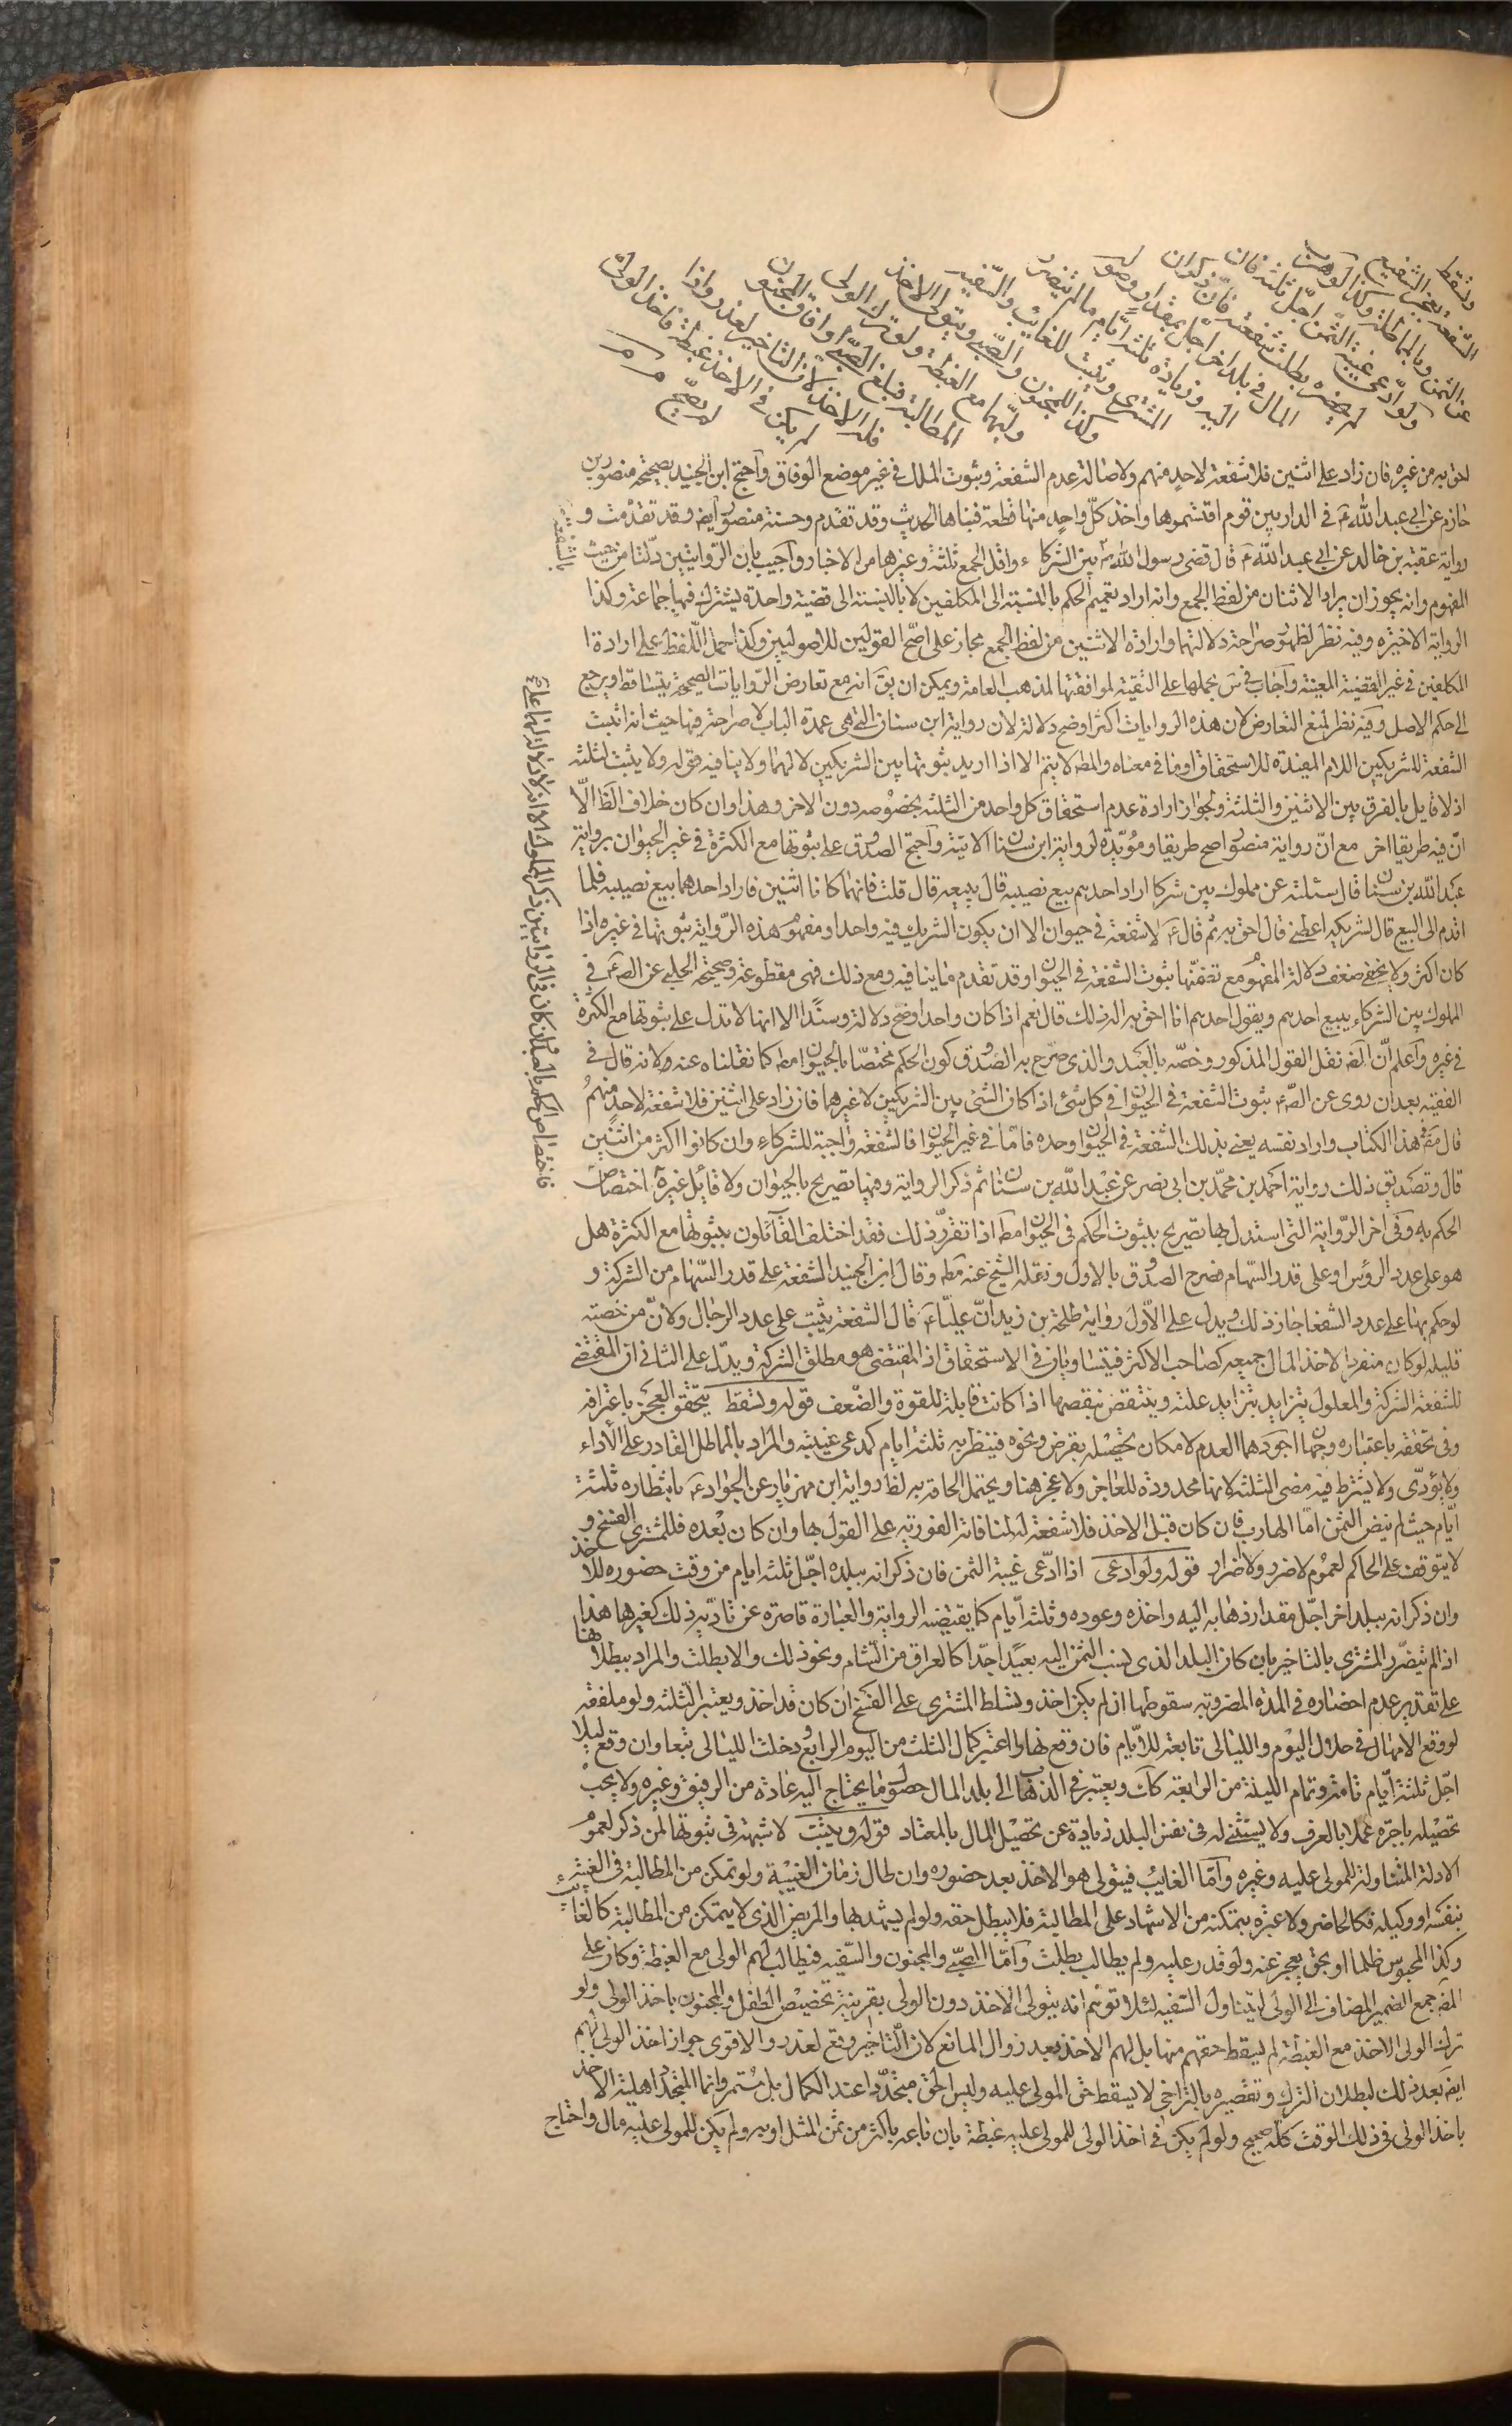 وتسقط الشفعة بعجز الشفيع
عن الثمن وبالمماطلة وكذا لو هرب
ولو ادعى غيبة الثمن اجل ثلثة فان
لم يحضره بطلت شفعته فان ذكر ان
المال في بلد اخر اجل بمقدار وصوله
اليه وزيادة ثلثة ايام ما لم يتضرر
المشتري وتثبت للغائب والسفيه
وكذا للمجنون والصبي ويتولى الاخذ
وليهما مع الغبطة ولو ترك الولي
المطالبة فبلغ الصبي او افاق المجنون
فله الاخذ لان التاخير لعذر واذا
لم يكن في الاخذ غبطة فاخذ الولي
لم يصح
احق به من غيره فان زاد على اثنين فلا شفعة لاحد منهم ولاصالة عدم الشفعة وثبوت الملك في غير موضع الوفاق واحتج ابن الجنيد بصحيحة منصور بن
حازم عن ابي عبد الله ع في الدار بين قوم اقتسموها واخذ كل واحد منها قطعة فبناها الحديث وقد تقدم وحسنة منصور ايضا وقد تقدمت و
رواية عقبة بن خالد عن ابي عبد الله ع قال قضى رسول الله ص بالشفعة بين الشركاء واقل الجمع ثلثة وغيرها من الاخبار واجيب بان الروايتين دلتا من حيث
المفهوم وانه يجوز ان يراد الاثنان من لفظ الجمع وانه اراد تعميم الحكم بالنسبة الى المكلفين لا بالنسبة الى قضية واحدة يشترك فيها جماعة وكذا
الرواية الاخيرة وفيه نظر لظهور صراحة دلالتها وارادة الاثنين من لفظ الجمع مجاز على اصح القولين للاصوليين وكذا حمل اللفظ على ارادة ا
المكلفين في غير القضية المعينة واجاب في س بحملها على التقية لموافقتها لمذهب العامة ويمكن ان يق انه مع تعارض الروايات الصحيحة يتساقط ويرجع
الى حكم الاصل وفيه نظر لمنع التعارض لان هذه الروايات اكثر اوضح دلالة لان رواية ابن سنان التي هي عمدة الباب لا صراحة فيها حيث انه اثبت
الشفعة للشريكين اللام المفيدة للاستحقاق او ما في معناه والمط لا يتم الا اذا اريد ثبوتها بين الشريكين لا لهما ولا ينافيه قوله ولا يثبت لثلثة
اذ لا قايل بالفرق بين الاثنين والثلثة ولجواز ارادة عدم استحقاق كل واحد من الثلثة بخصوصه دون الاخر وهذا وان كان خلاف الظ الا
ان فيه طريقا اخر مع ان رواية منصور اصح طريقا ومؤيدة لرواية ابن سنان الاتية واحتج الصدوق على ثبوتها مع الكثرة في غير الحيوان برواية
عبد الله بن سنان قال سئلته عن مملوك بين شركا اراد احدهم بيع نصيبه قال يبيعه قال قلت فانهما كانا اثنين فاراد احدهما بيع نصيبه فلما
اقدم الى البيع قال لشريكه اعطني قال احق به ثم قال ع لا شفعة في حيوان الا ان يكون الشريك فيه واحدا ومفهوم هذه الرواية ثبوتها في غيره اذا
كان اكثر ولا يخفى ضعف دلالة المفهوم مع تضمنها ثبوت الشفعة في الحيوان وقد تقدم ما ينافيه ومع ذلك فهي مقطوعة وصحيحة الحلبي عن الص ع في
المملوك بين الشركاء يبيع احدهم ويقول احدهم انا احق به اله ذلك قال نعم اذا كان واحدا اوضح دلالة وسندا الا انها لا تدل على ثبوتها مع الكثرة
في غيره واعلم ان المص نقل القول المذكور وخصه بالعبد والذي صرح به الصدوق كون الحكم مختصا بالحيوان مط كما نقلناه عنه ولانه قال في
الفقيه بعد ان روى عن الص ع ثبوت الشفعة في الحيوان وفي كل شئ اذا كان الشئ بين الشريكين لا غيرهما فان زاد على اثنين فلا شفعة لاحد منهم
قال مص هذا الكتاب واراد نفسه يعني بذلك الشفعة في الحيوان وحده فاما في غير الحيوان فالشفعة واجبة للشركاء وان كانوا اكثر من اثنين
قال وتصديق ذلك رواية احمد بن محمد بن ابي نصر عن عبد الله بن سنان ثم ذكر الرواية وفيها تصريح بالحيوان ولا قائل غيره اختصاص
الحكم به وفي اخر الرواية التي استدل بها تصريح بثبوت الحكم في الحيوان مط اذا تقرر ذلك فقد اختلف القائلون بثبوتها مع الكثرة هل
هو على عدد الرؤس او على قدر السهام فصرح الصدوق بالاول ونقله الشيخ عنه مط وقال ابن الجنيد الشفعة على قدر السهام من الشركة و
لو حكم بها على عدد الشفعا جاز ذلك ويدل على الاول رواية طلحة بن زيد ان عليا ع قال الشفعة تثبت على عدد الرجال ولان من حصته
قليلة لو كان منفردا لاخذ المال جميعه كصاحب الاكثر فيتساويان في الاستحقاق اذ المقتضى هو مطلق الشركة ويدل على الثاني ان المقتضى
للشفعة الشركة والمعلول يتزايد بتزايد علته وينتقص بنقصها اذا كانت قابلة للقوة والضعف قوله وتسقط يتحقق العجز باعترافه
وفي تحققه باعتباره وجهان اجودهما العدم لامكان تحصيله بقرض ونحوه فينظر به ثلثة ايام كمدعي غيبته والمراد بالمماطل القادر على الأداء
ولا يؤدي ولا يشترط فيه مضى الثلثة لانها محدودة للعاجز ولا عجز هنا ويحتمل الحاقه به لظ رواية ابن مهزيار عن الجواد ع بانتظاره ثلثة
ايام حيث لم ينض الثمن اما الهارب فان كان قبل الاخذ فلا شفعة له لمنافاته الفورية على القول بها وان كان بعده فللمشتري الفسخ و
لا يتوقف على الحاكم لعموم لا ضرر ولا ضرار قوله ولو ادعى اذا ادعى غيبة الثمن فان ذكر انه ببلده اجل ثلثة ايام من وقت حضوره للاخذ
وان ذكر انه ببلد اخر اجل مقدار ذهابه اليه واخذه وعوده وثلثة ايام كما يقتضيه الرواية والعبارة قاصرة عن تادية ذلك كغيرها هذا
اذا لم يتضرر المشتري بالتاخير بان كان البلد الذي نسب الثمن اليه بعيدا جدا كالعراق من الشام ونحو ذلك والا بطلت والمراد ببطلانها
على تقدير عدم احضاره في المدة المضروبة سقوطها ان لم يكن اخذ وتسلط المشتري على الفسخ ان كان قد اخذ ويعتبر الثلثة ولو ملفقة
لو وقع الامهال في خلال اليوم والليالي تابعة للايام فان وقع نهارا اعتبر اكمال الثلث من اليوم الرابع ودخلت الليالي تبعا وان وقع ليلا
اجل ثلثة ايام تامة وتمام الليلة من الرابعة كك ويعتبر في الذهاب الى بلد المال حصول ما يحتاج اليه عادة من الرفيق وغيره ولا يجب
تحصيله باجرة عملا بالعرف ولا يستثنى له في نفس البلد زيادة عن تحصيل المال بالمعتاد قوله ويثبت لا شبهة في ثبوتها لمن ذكر لعموم
الادلة المتناولة للمولى عليه وغيره واما الغايب فيتولى هو الاخذ بعد حضوره وان طال زمان الغيبة ولو تمكن من المطالبة في الغيبة
بنفسه او وكيله فكالحاضر ولا عبرة بتمكنه من الاشهاد على المطالبة فلا يبطل حقه ولو لم يشهد بها والمريض الذي لا يتمكن من المطالبة كالغايب
وكذا المحبوس ظلما او بحق يعجز عنه ولو قدر عليه ولم يطالب بطلت واما الصبي والمجنون والسفيه فيطالب لهم الولي مع الغبطة وكان على
المص جمع الضمير المضاف الى الولي ليتناول السفيه لئلا توهم انه يتولى الاخذ دون الولي بقرينة تخصيص الطفل والمجنون باخذ الولي ولو
ترك الولي الاخذ مع الغبطة لم يسقط حقهم منها بل لهم الاخذ بعد زوال المانع لان التاخير وقع لعذر والاقوى جواز اخذ الولي لهم
ايضا بعد ذلك لبطلان الترك وتقصيره بالتراخي لا يسقط حق المولى عليه وليس الحق متجددا عند الكمال بل مستمر وانما المتجدد اهلية الاخذ
باخذ الولي في ذلك الوقت كله صحيح ولو لم يكن في اخذ الولي للمولى عليه غبطة بان باعه باكثر من ثمن المثل او به ولم يكن للمولى عليه مال واحتاج
بالشفعة
فاختصاص الحكم بالعبد وان كان في الروايتين ذكر المملوك الا انه لا دلالة لهما على